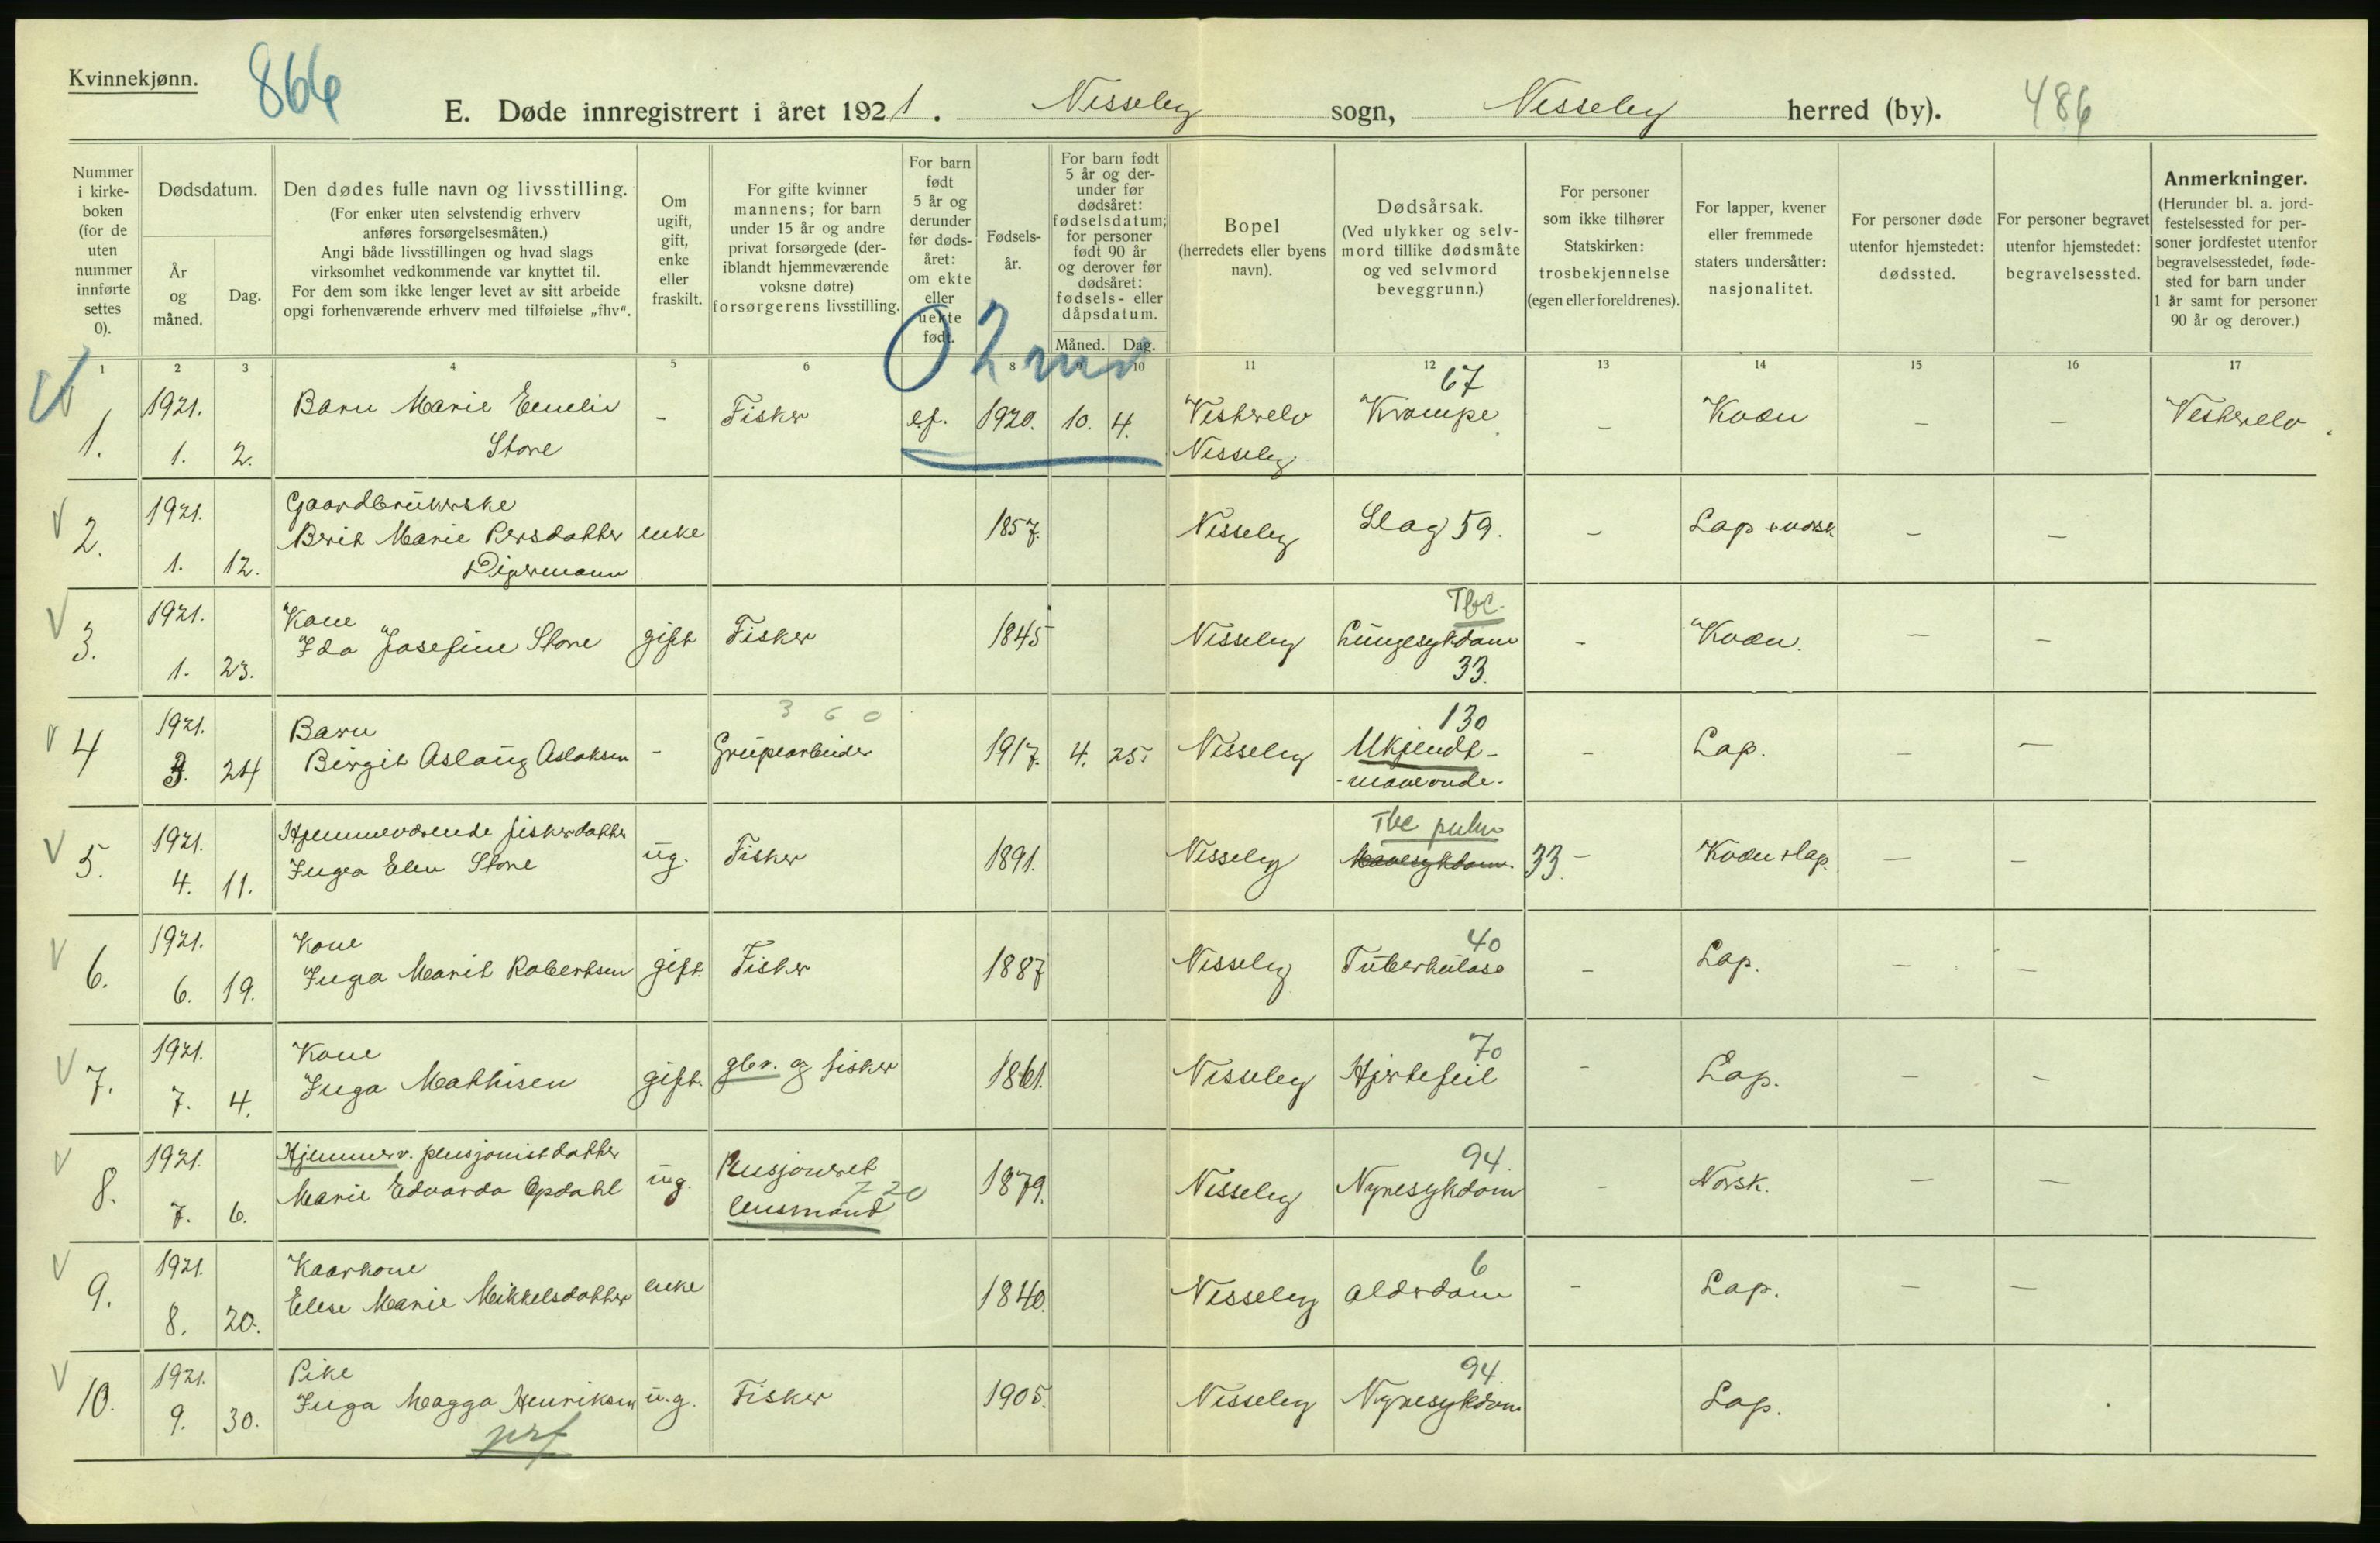 Kvinnekjønn.
866
E. Døde innregistrert i året 1921. Nesseby sogn, Nesseby herred (by). 486
Nummer i kirke-boken (for de uten nummer innførte settes 0).
Dødsdatum.
År og måned.
Dag.
Den dødes fulle navn og livsstilling.
(For enker uten selvstendig erhverv anføres forsørgelsesmåten.)
Angi både livsstillingen og hvad slags virksomhet vedkommende var knyttet til.
For dem som ikke lenger levet av sitt arbeide opgi forhenværende erhverv med tilføielse „fhv“.
Om ugift, gift, enke eller fraskilt.
For gifte kvinner mannens; for barn under 15 år og andre privat forsørgede (deriblandt hjemmeværende voksne døtre) forsørgerens livsstilling.
For barn født 5 år og derunder før dødsåret: om ekte eller uekte født.
Fødsels-år.
For barn født 5 år og derunder før dødsåret: fødselsdatum; for personer født 90 år og derover før dødsåret: fødsels- eller dåpsdatum.
Måned. Dag.
Bopel (herredets eller byens navn).
Dødsårsak. (Ved ulykker og selvmord tillike dødsmåte og ved selvmord beveggrunn.)
For personer som ikke tilhører Statskirken: trosbekjennelse (egen eller foreldrenes).
For lapper, kvener eller fremmede staters undersåtter: nasjonalitet.
For personer døde utenfor hjemstedet: dødssted.
For personer begravet utenfor hjemstedet: begravelsessted.
Anmerkninger. (Herunder bl. a. jordfestelsessted for personer jordfestet utenfor begravelsesstedet, fødested for barn under 1 år samt for personer 90 år og derover.)
0 2 mnd
1 2 3 4 5 6 8 10 11 12 13 14 15 16 17
67
1. 1921. Barn Marie Emelie - Fisker e.f. 1920. 10. 4. Vesterelv Krampe - Kvæn - - Vesterelv.
1. 2. Store Nesseby
2. 1921. Gaardbrukerske
Berit Marie Persdatter enke 1857. Nesseby Slag 59. - Lap + norsk - -
1. 12. Digermann
3. 1921. Kone Tbc.
Ida Josefine Store gift Fisker 1845 Nesseby Lungesykdom - Kvæn. - -
1. 23. 33.
360 130
4 1921. Barn
3. 24 Birgit Aslaug Aslaksen - Grubearbeider 1917. 4. 25. Nesseby Ukjendt - - Lap. - -
- maveonde -
5. 1921. Hjemmeværende fiskerdatter Tbc pulm
4. 11. Inga Elen Store ug. Fisker 1891. Nesseby Mavesykdom 33. - Kvæn + lap. - -
6. 1921. Kone 40
6. 19. Inga Marit Robertsen gift. Fisker 1887 Nesseby Tuberkulose - Lap. - -
7. 1921. Kone 70
7. 4. Inga Mathisen gift. gbr. og fisker 1861. Nesseby Hjertefeil - Lap. - -
8. 1921. Hjemmev. pensjonistdatter Pensjonert 94.
7. 6. Marie Edvarda Opdahl ug. lensmand 720 1879. Nesseby Nyresykdom - Norsk. - -
9. 1921. Kaarkone 6
8. 20. Elese Marie Mikkelsdatter enke 1840. Nesseby Alderdom - Lap. - -
10. 1921. Pike 94.
9. 30. Inga Magga Henriksen u.g. Fisker 1905. Nesseby Nyresykdom Lap.
prf